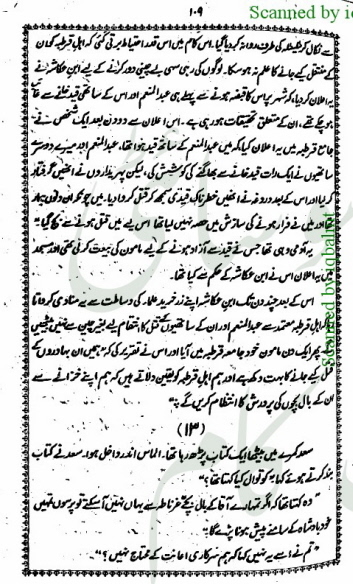 ۱۰۹
Scanned by iqbalmt
سے نکال کر طلیطلہ کی طرف روانہ کر دیا گیا۔ اس کام میں اس قدر احتیاط برتی گئی کہ اہل قرطبہ کو ان
کے منتقل کیے جانے کا علم نہ ہو سکا۔ لوگوں کی رہی سہی بے چینی دور کرنے کے لیے ابن عکاشہ نے
یہ اعلان کر دیا کہ شہر پر اس کا قبضہ ہونے سے پہلے ہی عبدالمنعم اور اس کے ساتھی قید خانے سے غائب
ہو چکے تھے۔ ان کے متعلق تحقیقات ہو رہی ہے۔ اس اعلان سے دو دن بعد ایک شخص نے
جامع قرطبہ میں یہ اعلان کیا کہ میں عبدالمنعم کے ساتھ قید ہوا تھا۔ عبدالمنعم اور میرے دوسرے
ساتھیوں نے ایک رات قید خانے سے بھاگنے کی کوشش کی، لیکن پہریداروں نے انھیں گرفتار
کر لیا اور اس کے بعد داروغہ نے انھیں خطرناک قیدی سمجھ کر قتل کروا دیا۔ میں چونکہ ان دنوں بیمار
تھا اور میں نے فرار ہونے کی سازش میں حصہ نہیں لیا تھا اس لیے میں قتل ہونے سے بچ گیا۔
یہ آدمی وہی تھا جس نے قید سے آزاد ہونے کے لیے مامون کی بیعت کر لی تھی اور مسجد
میں یہ اعلان اس نے ابن عکاشہ کے حکم سے کیا تھا۔
اس کے بعد چند دن تک ابن عکاشہ اپنے زرخرید علماء کی وساطت سے یہ منادی کرواتا
کہ اہل قرطبہ معتمد سے عبدالمنعم اور ان کے ساتھیوں کے قتل کا انتقام لیے بغیر چین سے نہیں بیٹھیں
پھر ایک دن مامون خود جامعہ قرطبہ میں آیا اور اس نے تقریر کی کہ "ہمیں ان بہادروں کے
قتل کیے جانے کا بہت دکھ ہے اور ہم اہل قرطبہ کو یقین دلاتے ہیں کہ ہم اپنے خزانے سے
ان کے بال بچوں کی پرورش کا انتظام کریں گے"۔
(۱۳)
سعد کمرے میں بیٹھا ایک کتاب پڑھ رہا تھا۔ الماس اندر داخل ہوا۔ سعد نے کتاب
بند کرتے ہوئے کہا "کوتوال کیا کہتا تھا؟"
"وہ کہتا تھا کہ اگر تمہارے آقا کے بال بچے غرناطہ سے یہاں نہیں آ سکے تو پرسوں تمہیں
خود بادشاہ کے سامنے پیش ہونا پڑے گا۔"
"تم نے اسے یہ نہیں کہا کہ ہم سرکاری اعانت کے محتاج نہیں؟"
Scanned by iqbalmt